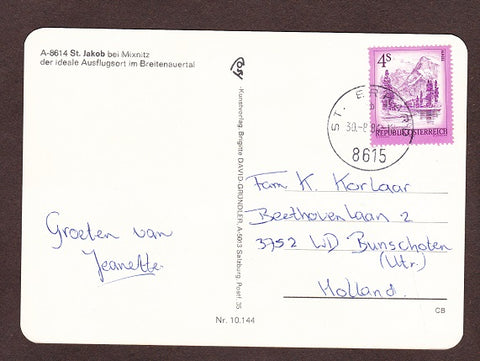 A-8614 St. Jakob bei Mixnitz
der ideale Ausflugsort im Breitenauertal
Groeten van
Jeanette.
Kunstverlag Brigitte DAVID-GRÜNDLER, A-5013 Salzburg, Postf. 35
Nr. 10.144
4s
REPUBLIK ÖSTERREICH
ST. ERHARD
30.-8.
8615
Fam K. Korlaar
Beethovenlaan 2
3752 WD Bunschoten
(Utr.)
Holland.
CB